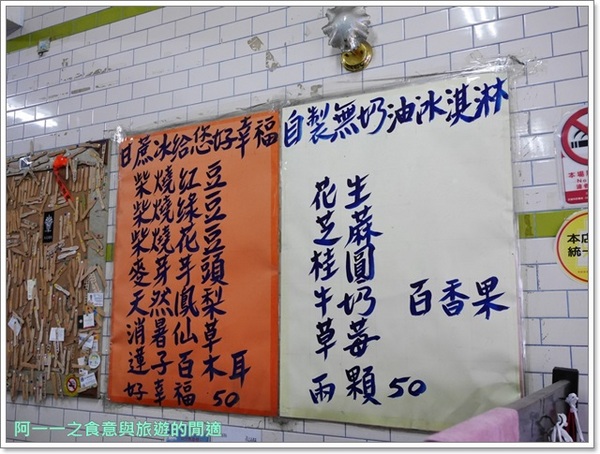 甘蔗冰給您好幸福
柴燒紅豆
柴燒綠豆
柴燒花豆
麥芽芋頭
天然鳳梨
消暑仙草
蓮子百木耳
好幸福 50
自製無奶油冰淇淋
花生
芝蔴
桂圓
牛奶 百香果
草莓
兩顆50
本店
統一
阿一一之食意與旅遊的閒適